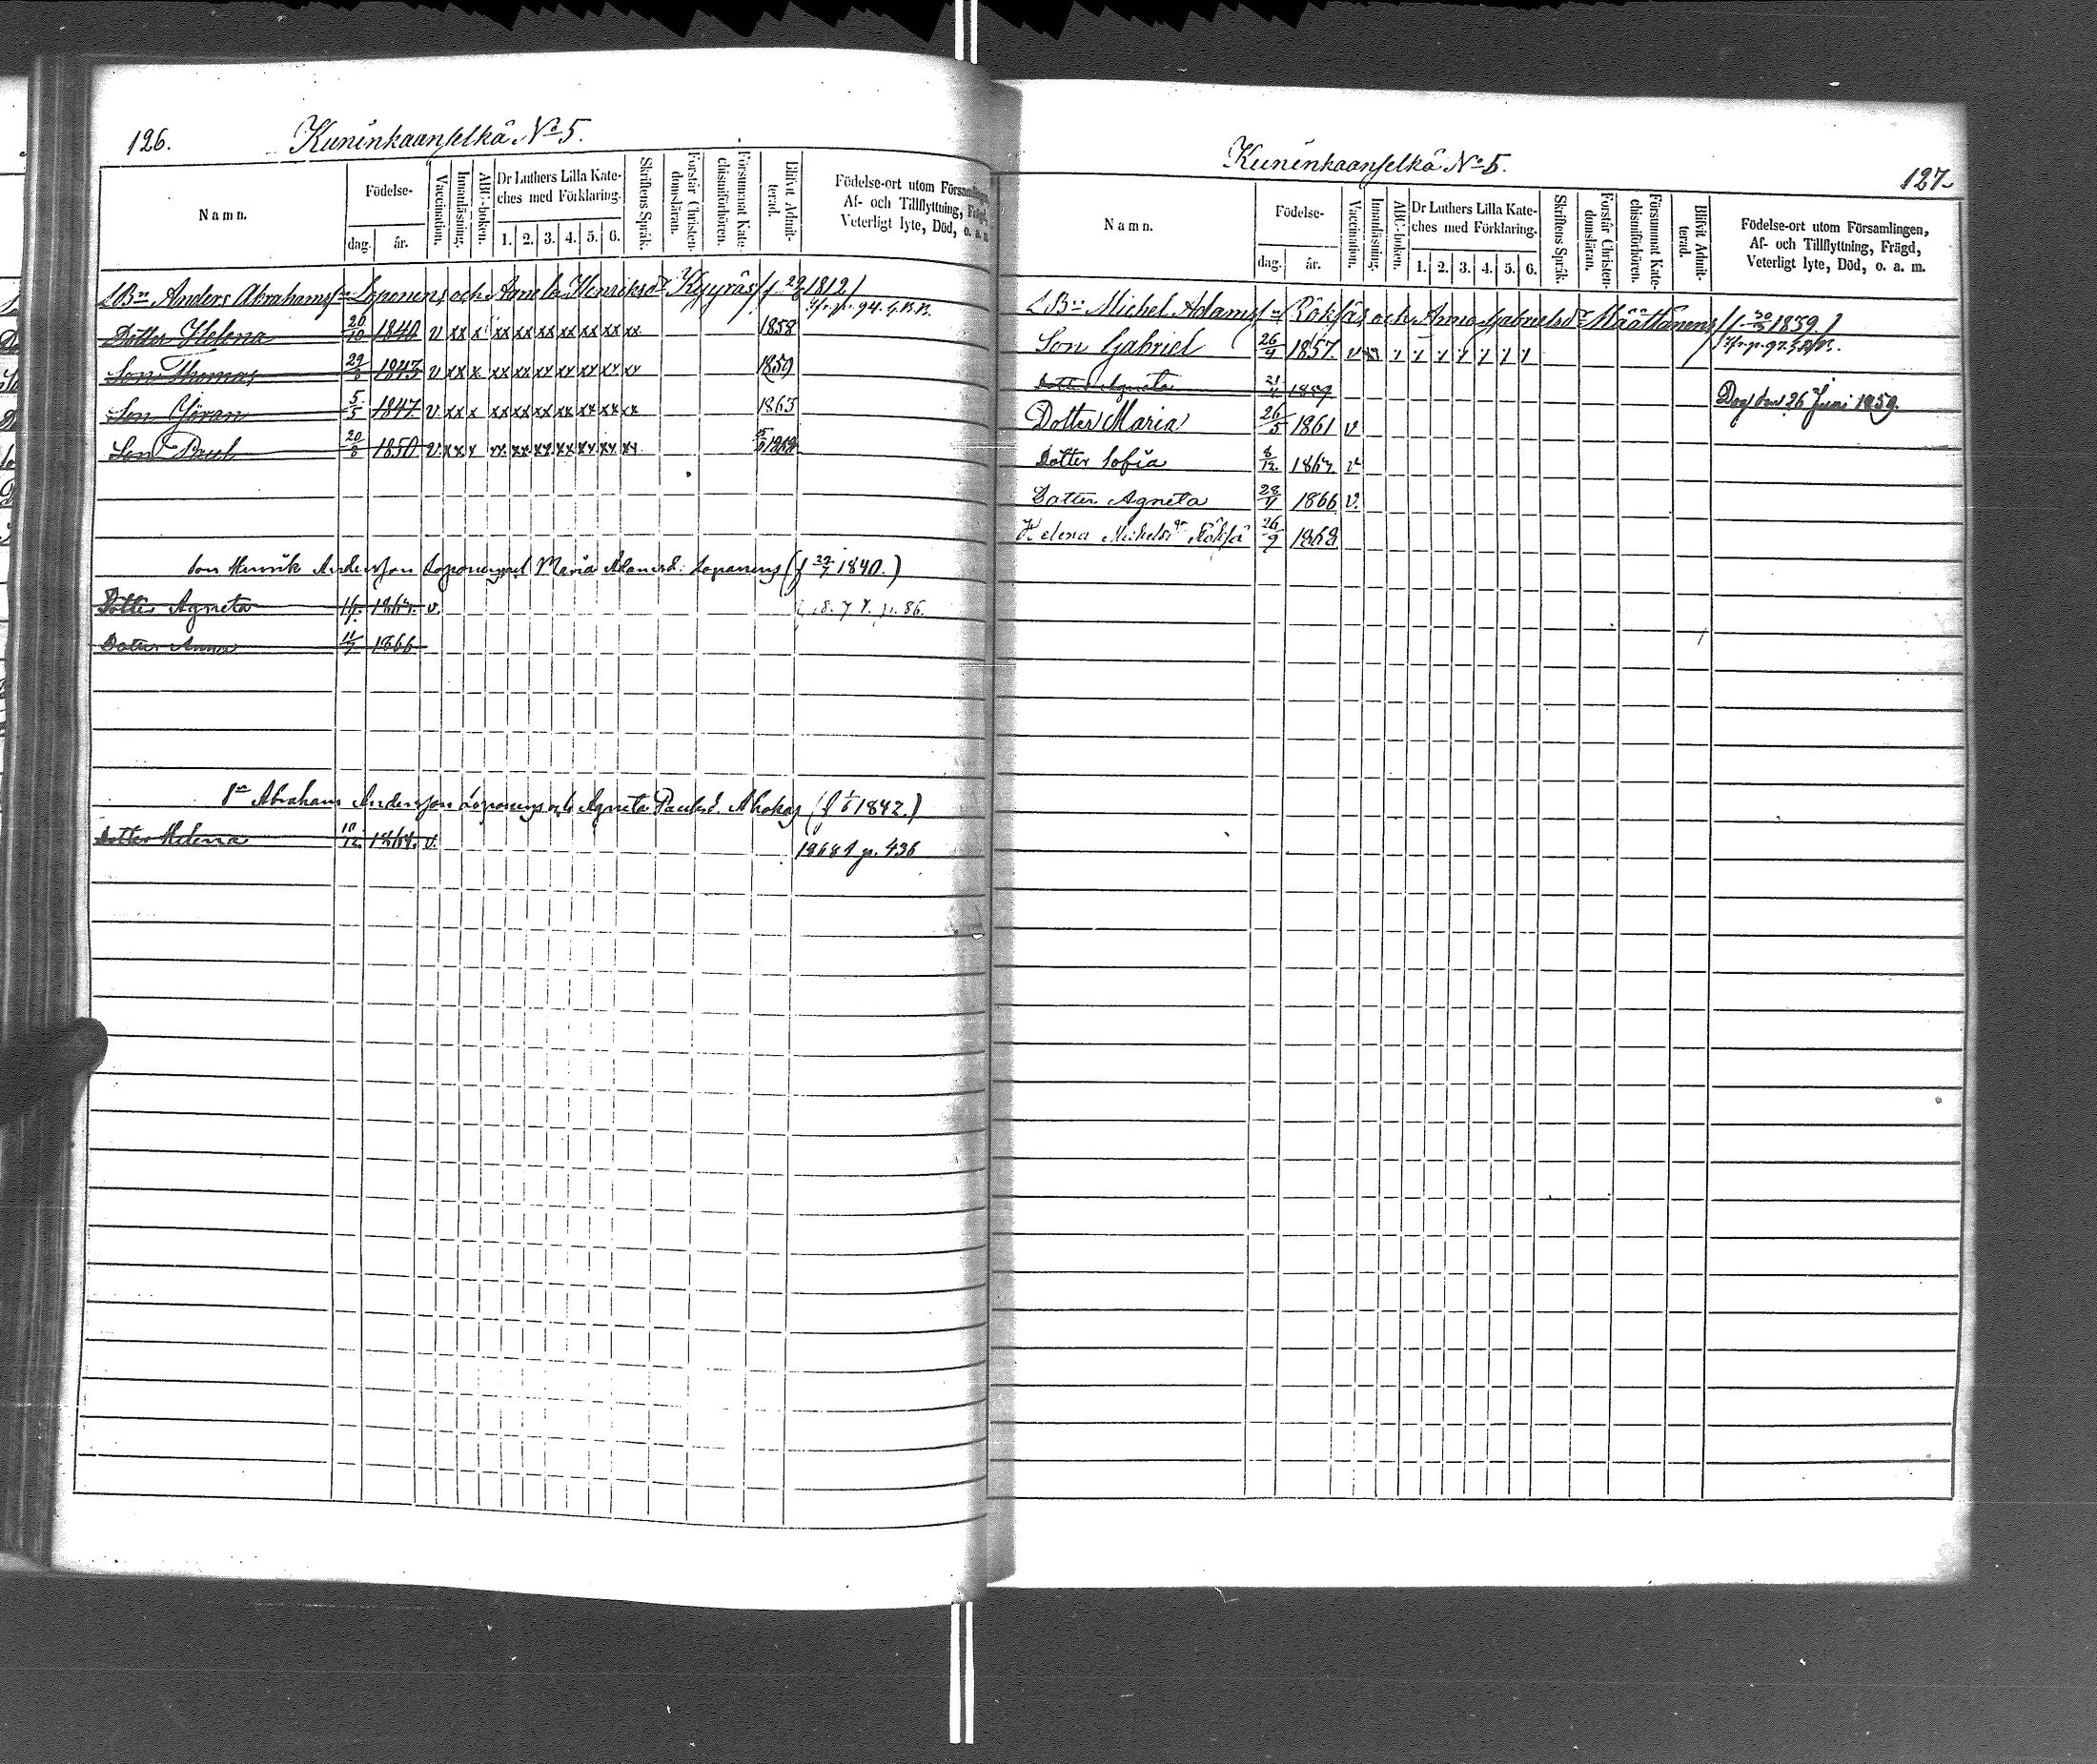 126. Kuninkaanselkä No 5.
Namn.
Födelse-
dag. år.
Vaccination.
Innanläsning.
ABC-boken.
Dr Luthers Lilla Kate-
ches med Förklaring.
1. 2. 3. 4. 5. 6.
Skriftens Språk.
Förstår Christen-
domsläran.
Försummat Kate-
chismiförhören.
Blifvit Admit-
terad.
Födelse-ort utom Försam
Af- och Tillflyttning, Frägd,
Veterligt lyte, Död, o. a. m.
LBn Anders Abrahamss:n Loponens och Agneta Henriksdr Kyyräs (f 1812)
p. 94. G.B.B.
Dotter Helena 26/10 1840 v xx x xx xx xx xx xx xx xx 1858
Son Thomas 29/8 1843 v xx x xx xx xx xx xx xx xx 1859
Son Göran 5/5 1847 v xx x xx xx xx xx xx xx xx 1865
Son Paul 20/8 1850 v xx x xx xx xx xx xx xx xx
Son Henrik Andersson Loponens och Maria Adamsd. Loponens (f 1840.)
Dotter Agneta v. p. 86.
Dotter Anna 1866
Sn Abraham Andersson Loponens och Agneta Paulsd. Ahokas (f 1/6 1842.)
Dotter Helena 10/12 1864. v. 1868 p. 436
Kuninkaanselkä No 5. 127.
Namn.
Födelse-
dag. år.
Vaccination.
Innanläsning.
ABC-boken.
Dr Luthers Lilla Kate-
ches med Förklaring.
1. 2. 3. 4. 5. 6.
Skriftens Språk.
Förstår Christen-
domsläran.
Försummat Kate-
chismiförhören.
Blifvit Admit-
terad.
Födelse-ort utom Församlingen,
Af- och Tillflyttning, Frägd,
Veterligt lyte, Död, o. a. m.
LBn Michel Adamss:n Röksäs och Anna Gabrielsdr Määttänens (f 1839.)
p. 97. G.B.B.
Son Gabriel 26/9 1857. v
Dotter Agneta 1859 Dog den 26 Juni 1859.
Dotter Maria 26/5 1861 v
Dotter Sofia 8/12 v
Dotter Agneta 1866 v.
Helena Michelsdr 26/9 1868